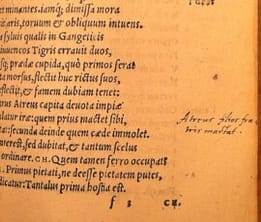 minantes. iamq; dimissa mora
toruum & obliquum intuens.
syluis qualis in Gangeticis
iuuencos Tigris errauit duos,
q; prædæ cupida, quò primos ferat
morsus, flectit huc rictus suos,
flectit, & famem dubiam tenet:
Atreus capita deuota impiæ
iræ: quem prius mactet sibi,
secunda deinde quem cæde immolet.
interest, sed dubitat, & tantum scelus
ordinare. CH. Quem tamen ferro occupat?
Primus pietati, ne deesse putem putes,
dicatur: Tantalus prima hostia est.
f 3 CH.
Atreus
mactat.